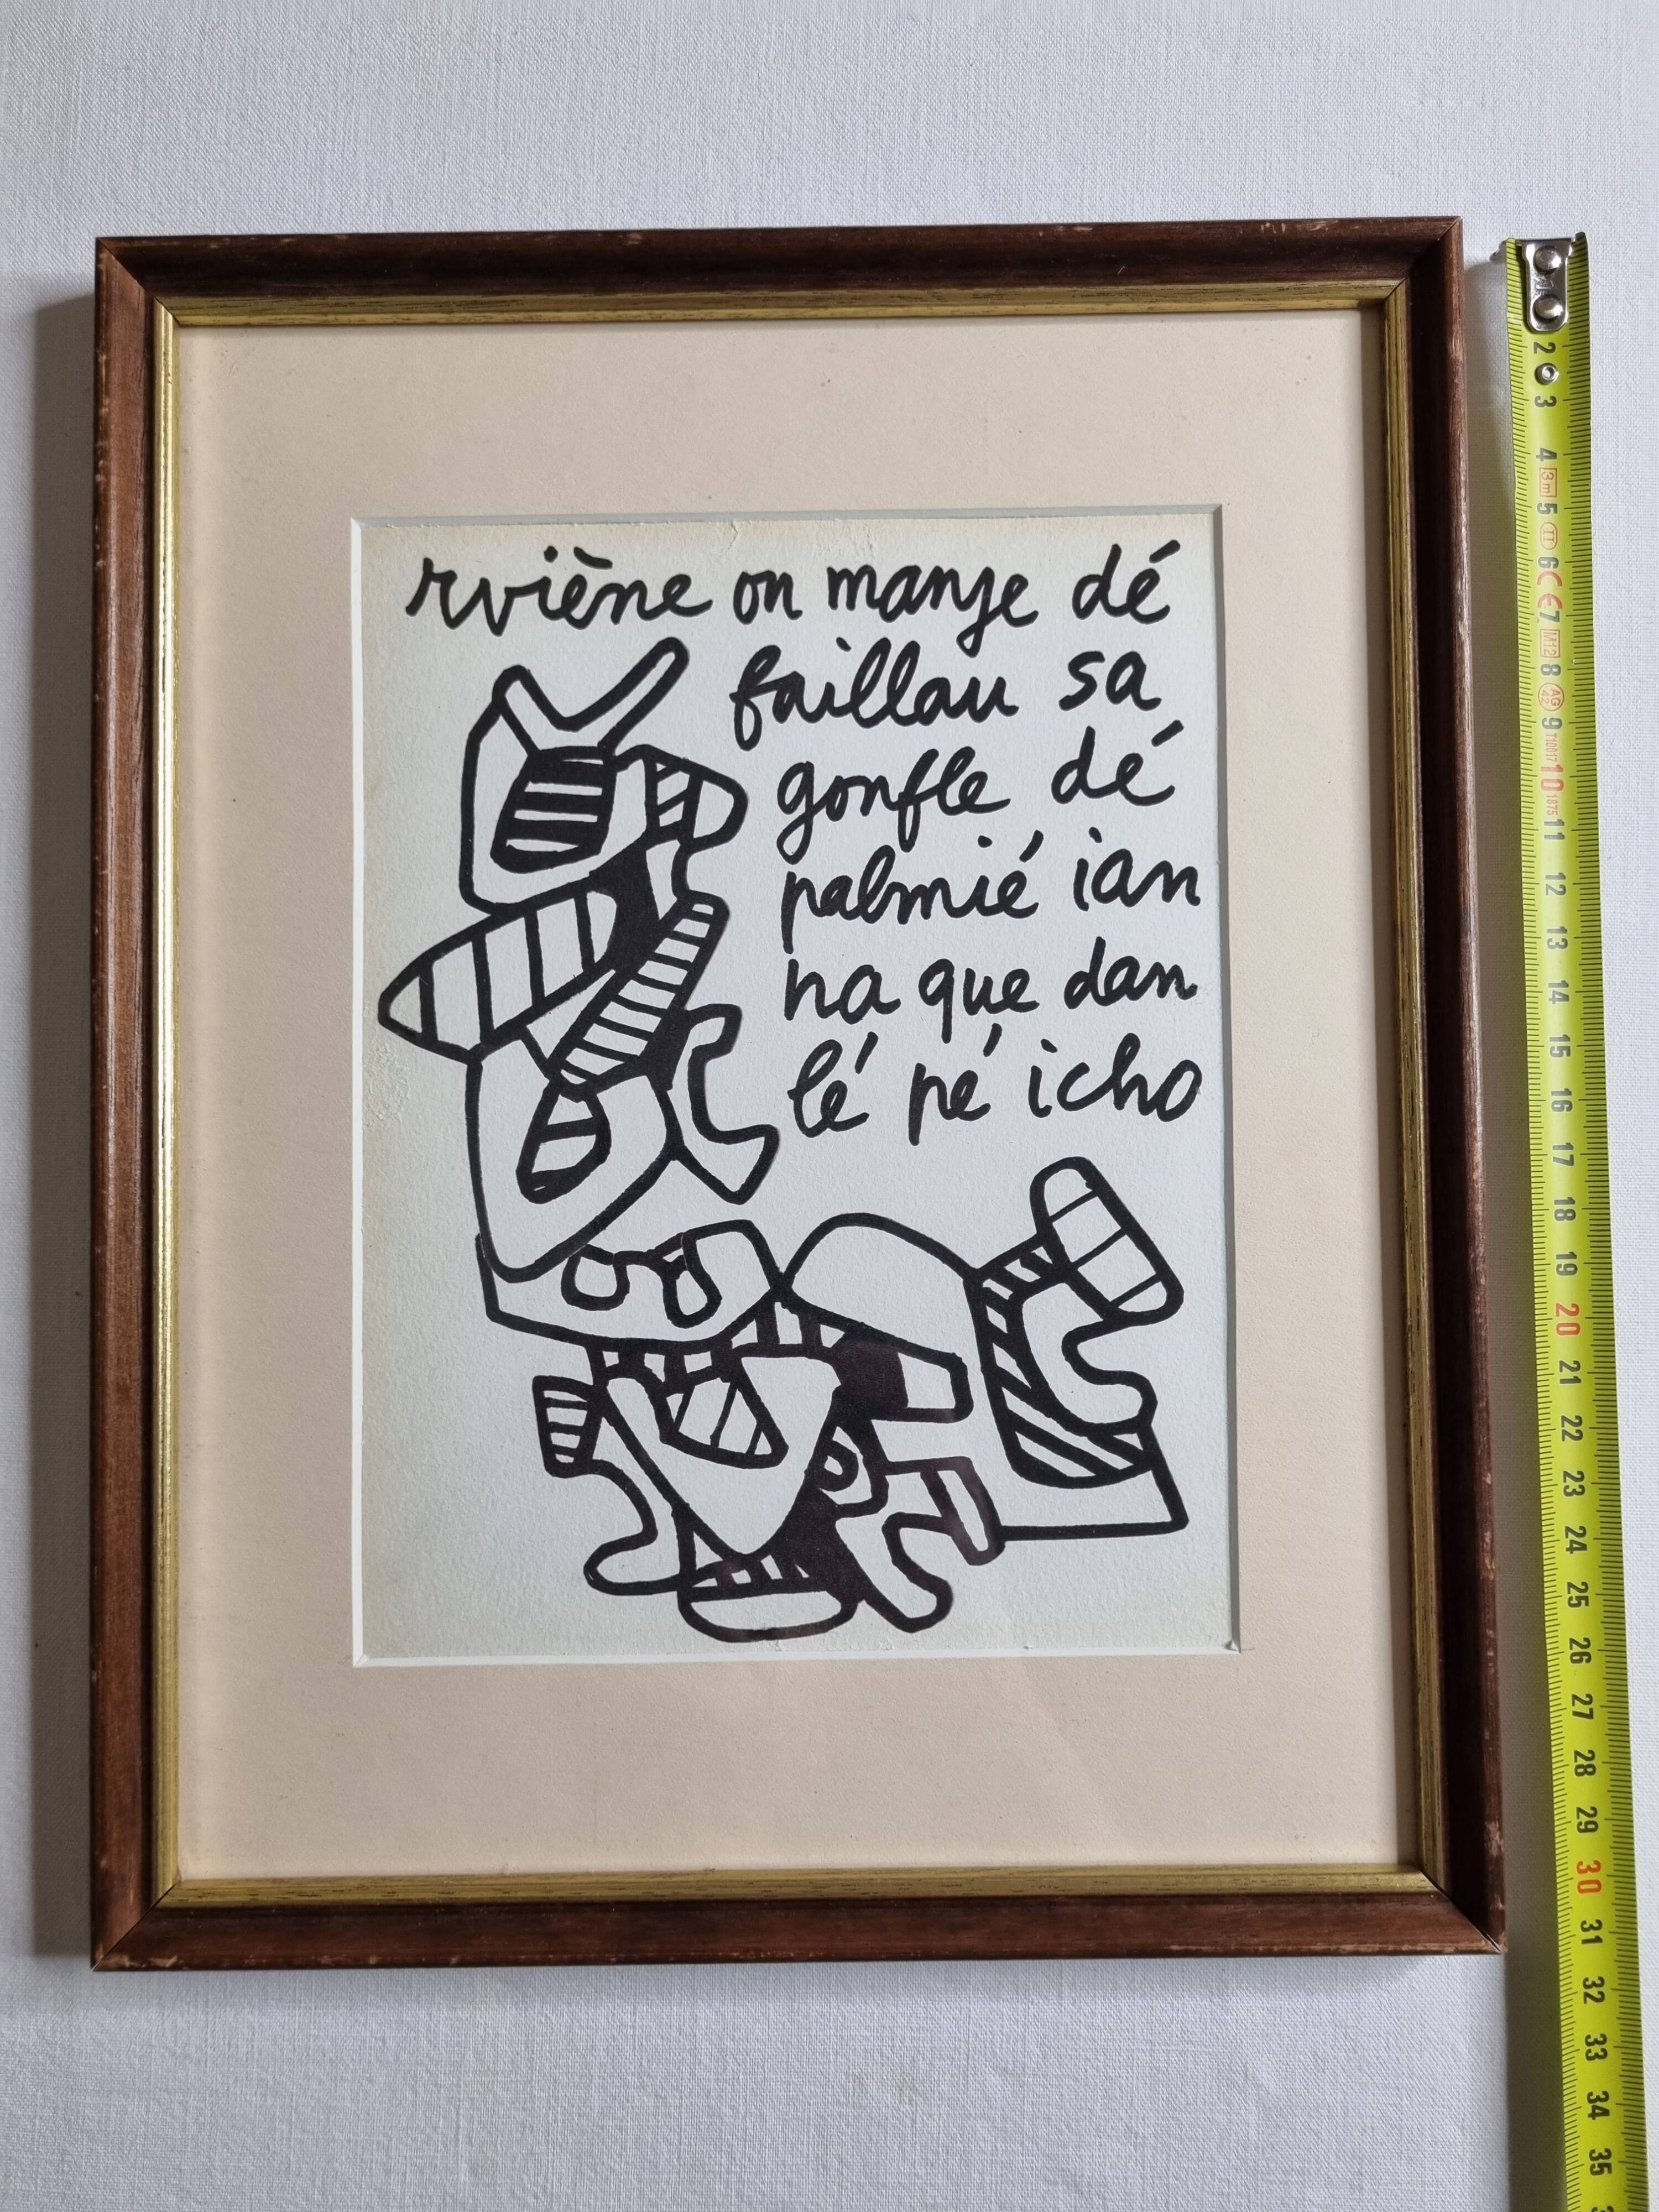 rviène on manje dé
faillau sa
gonfle dé
palmié ian
na que dan
lé pé icho
2
3
4 3m
5 II
6 CE
7 M12
8
9 T1001
10 1875
11
12
13
14
15
16
17
18
19
20
21
22
23
24
25
26
27
28
29
30
31
32
33
34
35